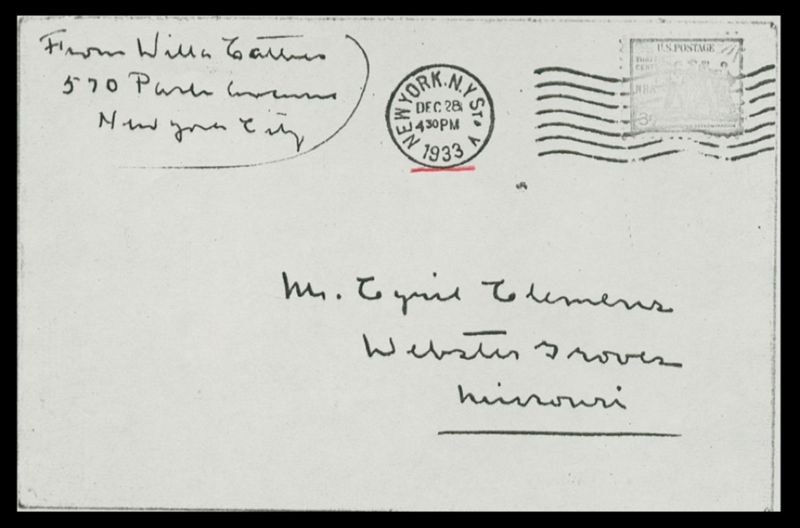 From Willa Cather
570 Park Avenue
New York City
NEW YORK, N.Y. STA. Y
DEC 28
430 PM
1933
U.S. POSTAGE
N.R.A.
3c
Mr. Cyril Clemens
Webster Groves
Missouri